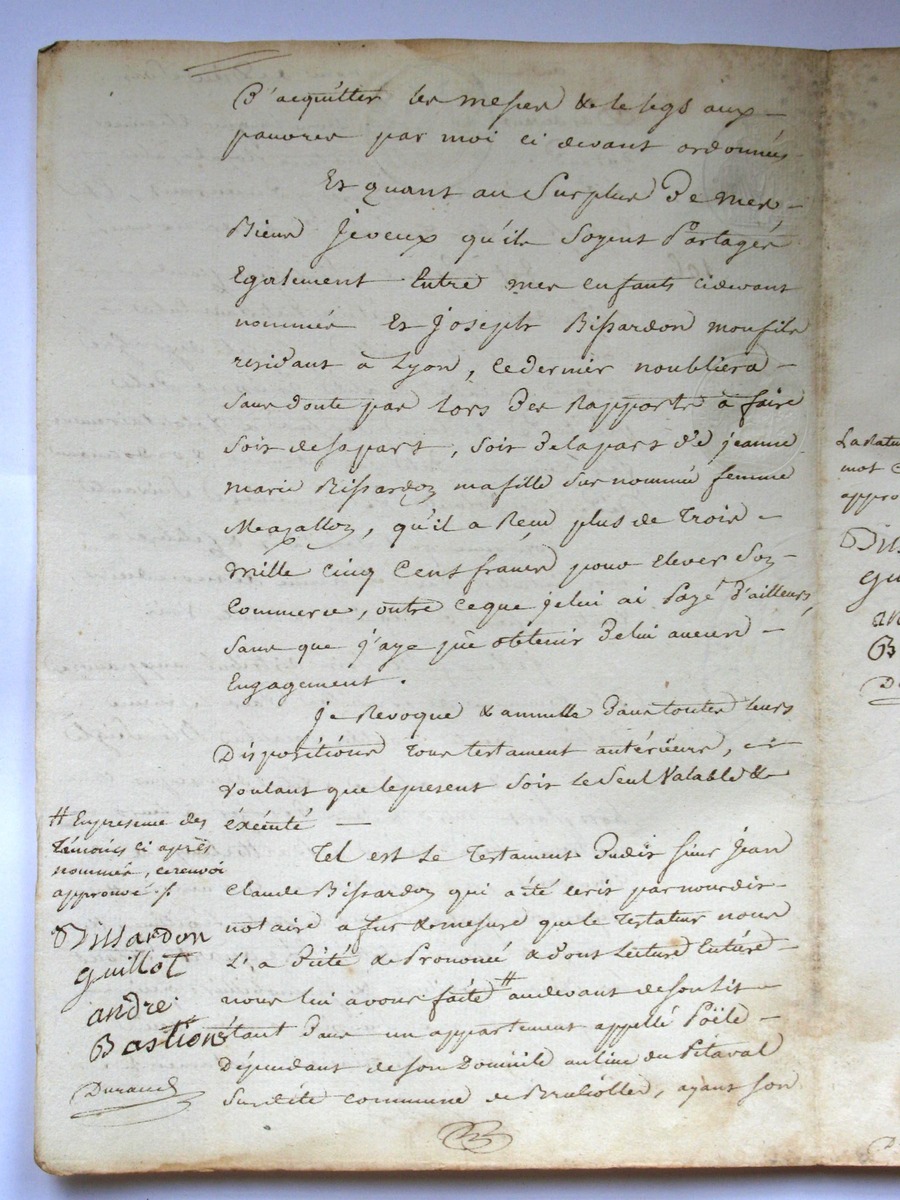 D'acquitter les messes & le legs aux
pauvres par moi ci devant ordonnés
Et quant au Surplus De mes
Biens Jeveux qu'ils Soyent Partagés
Egalement Entre mes enfants cidevant
nommés Et Joseph Bissardon monfils
residant à Lyon, cedernier noubliera
Sans doute pas lors Des Rapports à faire
Soit desapart, Soit Delapart De jeanne
marie Bissardon mafille Sus nommé femme
Magallon, qu'il a Reçu plus de Trois
Mille Cinq Cent francs pour elever Son
Commerce, outre ceque jelui ai Payé D'ailleurs,
Sans que j'aye pûe obtenir Delui aucun
Engagement.
Je Revoque & annulle Dans toutes leurs
Dispositions tous testament antérieurs,
voulant que lepresent Soit le Seul Valable &
éxécuté
Tel est Le Testament Dudit Sieur Jean
Claude Bissardon qui a été écrit par nousdit
notaire a fur & mesure que le Testateur nous
L'a Dicté & Prononcé & Dont Lecture Entière
nous lui avons faite # audevant deson lit
étant Dans un appartement appellé Poële
Dépendant de son Domicile au lieu du Pitaval
Susdite commune de Brullolles, ayant son
# En presence des
Témoins ci après
nommés, cerenvoi
approuvé ./.
Bissardon
guillot
andre
Bastion
Durand
mot
appro
Biss
gu
an
B
D